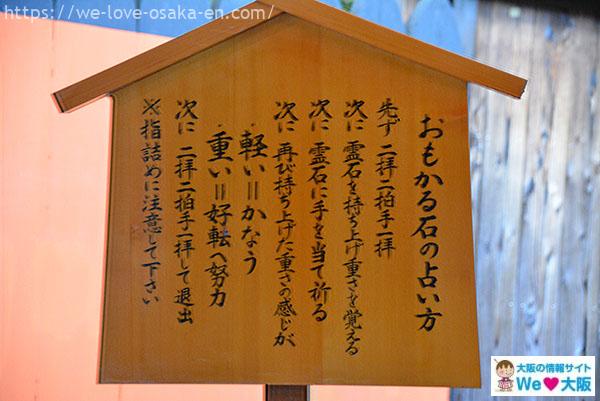 https://we-love-osaka-en.com/
おもかる石の占い方
先ず 二拝二拍手一拝
次に 霊石を持ち上げ重さを覚える
次に 霊石に手を当て祈る
次に 再び持ち上げた重さの感じが
・軽い＝かなう
・重い＝好転へ努力
次に 二拝二拍手一拝して退出
※指詰めに注意して下さい
大阪の情報サイト
We♥大阪